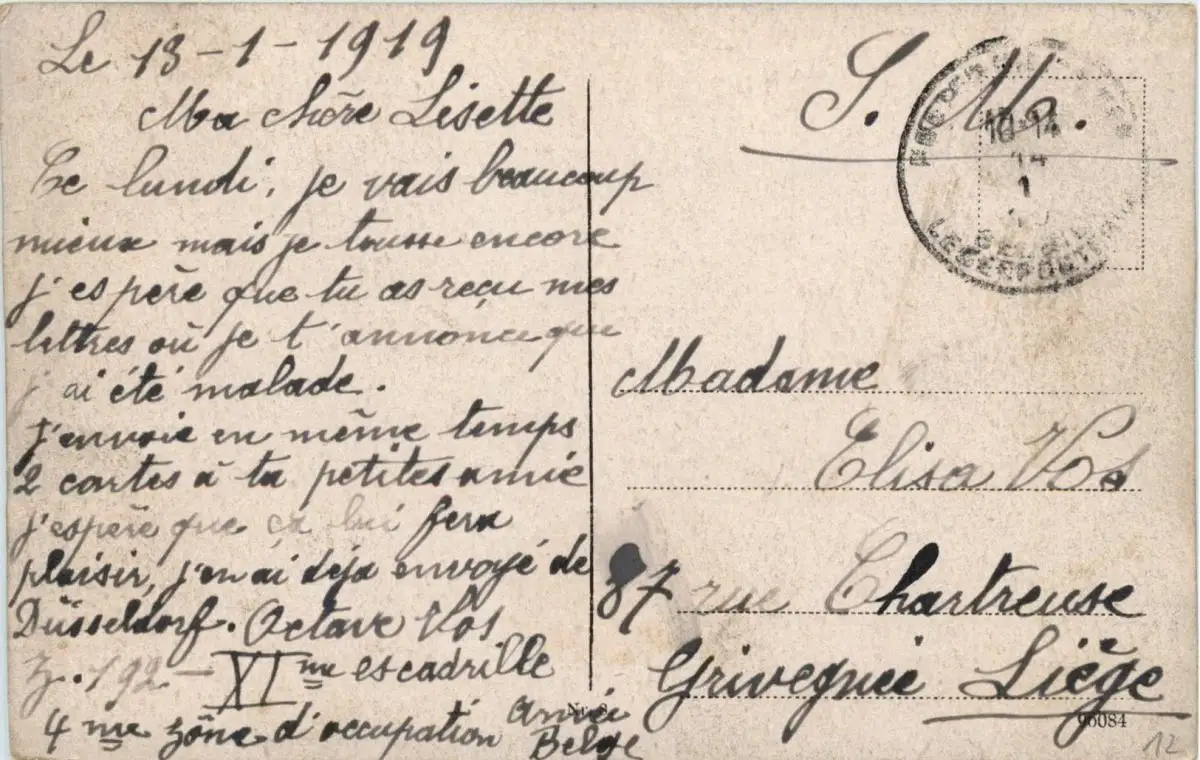 Le 13-1-1919
Ma chère Lisette
Ce lundi, je vais beaucoup
mieux mais je tousse encore
j'espère que tu as reçu mes
lettres où je t'annonce que
j'ai été malade.
J'envoie en même temps
2 cartes à ta petites amie
j'espère que ça lui fera
plaisir, j'en ai déjà envoyé de
Düsseldorf. Octave Vos
Z. 192 - XIme escadrille
4me zône d'occupation
Belge
S. M.
10-14
14
1
Madame
Elisa Vos
87 rue Chartreuse
Grivegnée Liège
Nr. 8
96084
12